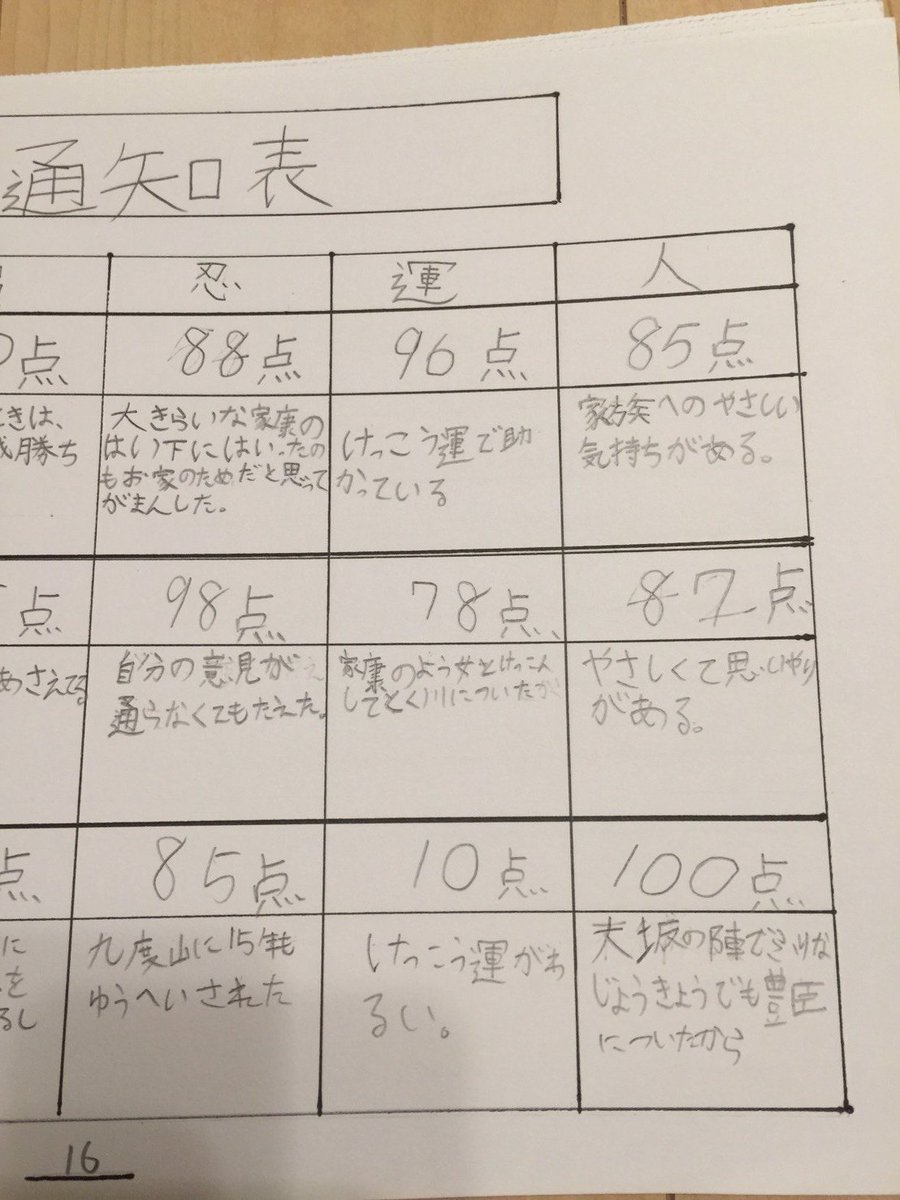 通知表
忍 運 人
点 88点 96点 85点
きは、
勝ち
大きらいな家康の
はい下にはいったの
もお家のためだと思って
がまんした。
けっこう運で助
かっている
家族へのやさしい
気持ちがある。
点 98点 78点 87点
あさえてる
自分の意見が
通らなくてもたえた。
家康のよう女とけっこん
してとく川についたが
やさしくて思いやり
がある。
点 85点 10点 100点
に
を
るし
九度山に15年も
ゆうへいされた
けっこう運がわ
るい。
大坂の陣でふりな
じょうきょうでも豊臣
についたから
16